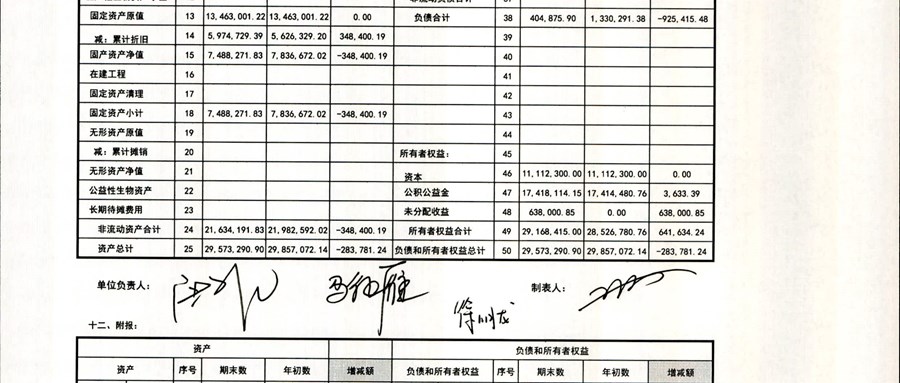 固定资产原值 13 13,463,001.22 13,463,001.22 0.00 负债合计 38 404,875.90 1,330,291.38 -925,415.48
减:累计折旧 14 5,974,729.39 5,626,329.20 348,400.19 39
固产资产净值 15 7,488,271.83 7,836,672.02 -348,400.19 40
在建工程 16 41
固定资产清理 17 42
固定资产小计 18 7,488,271.83 7,836,672.02 -348,400.19 43
无形资产原值 19 44
减:累计摊销 20 所有者权益: 45
无形资产净值 21 资本 46 11,112,300.00 11,112,300.00 0.00
公益性生物资产 22 公积公益金 47 17,418,114.15 17,414,480.76 3,633.39
长期待摊费用 23 未分配收益 48 638,000.85 0.00 638,000.85
非流动资产合计 24 21,634,191.83 21,982,592.02 -348,400.19 所有者权益合计 49 29,168,415.00 28,526,780.76 641,634.24
资产总计 25 29,573,290.90 29,857,072.14 -283,781.24 负债和所有者权益总计 50 29,573,290.90 29,857,072.14 -283,781.24
单位负责人: 制表人:
十二、附报:
资产 负债和所有者权益
资产 序号 期末数 年初数 增减额 负债和所有者权益 序号 期末数 年初数 增减额